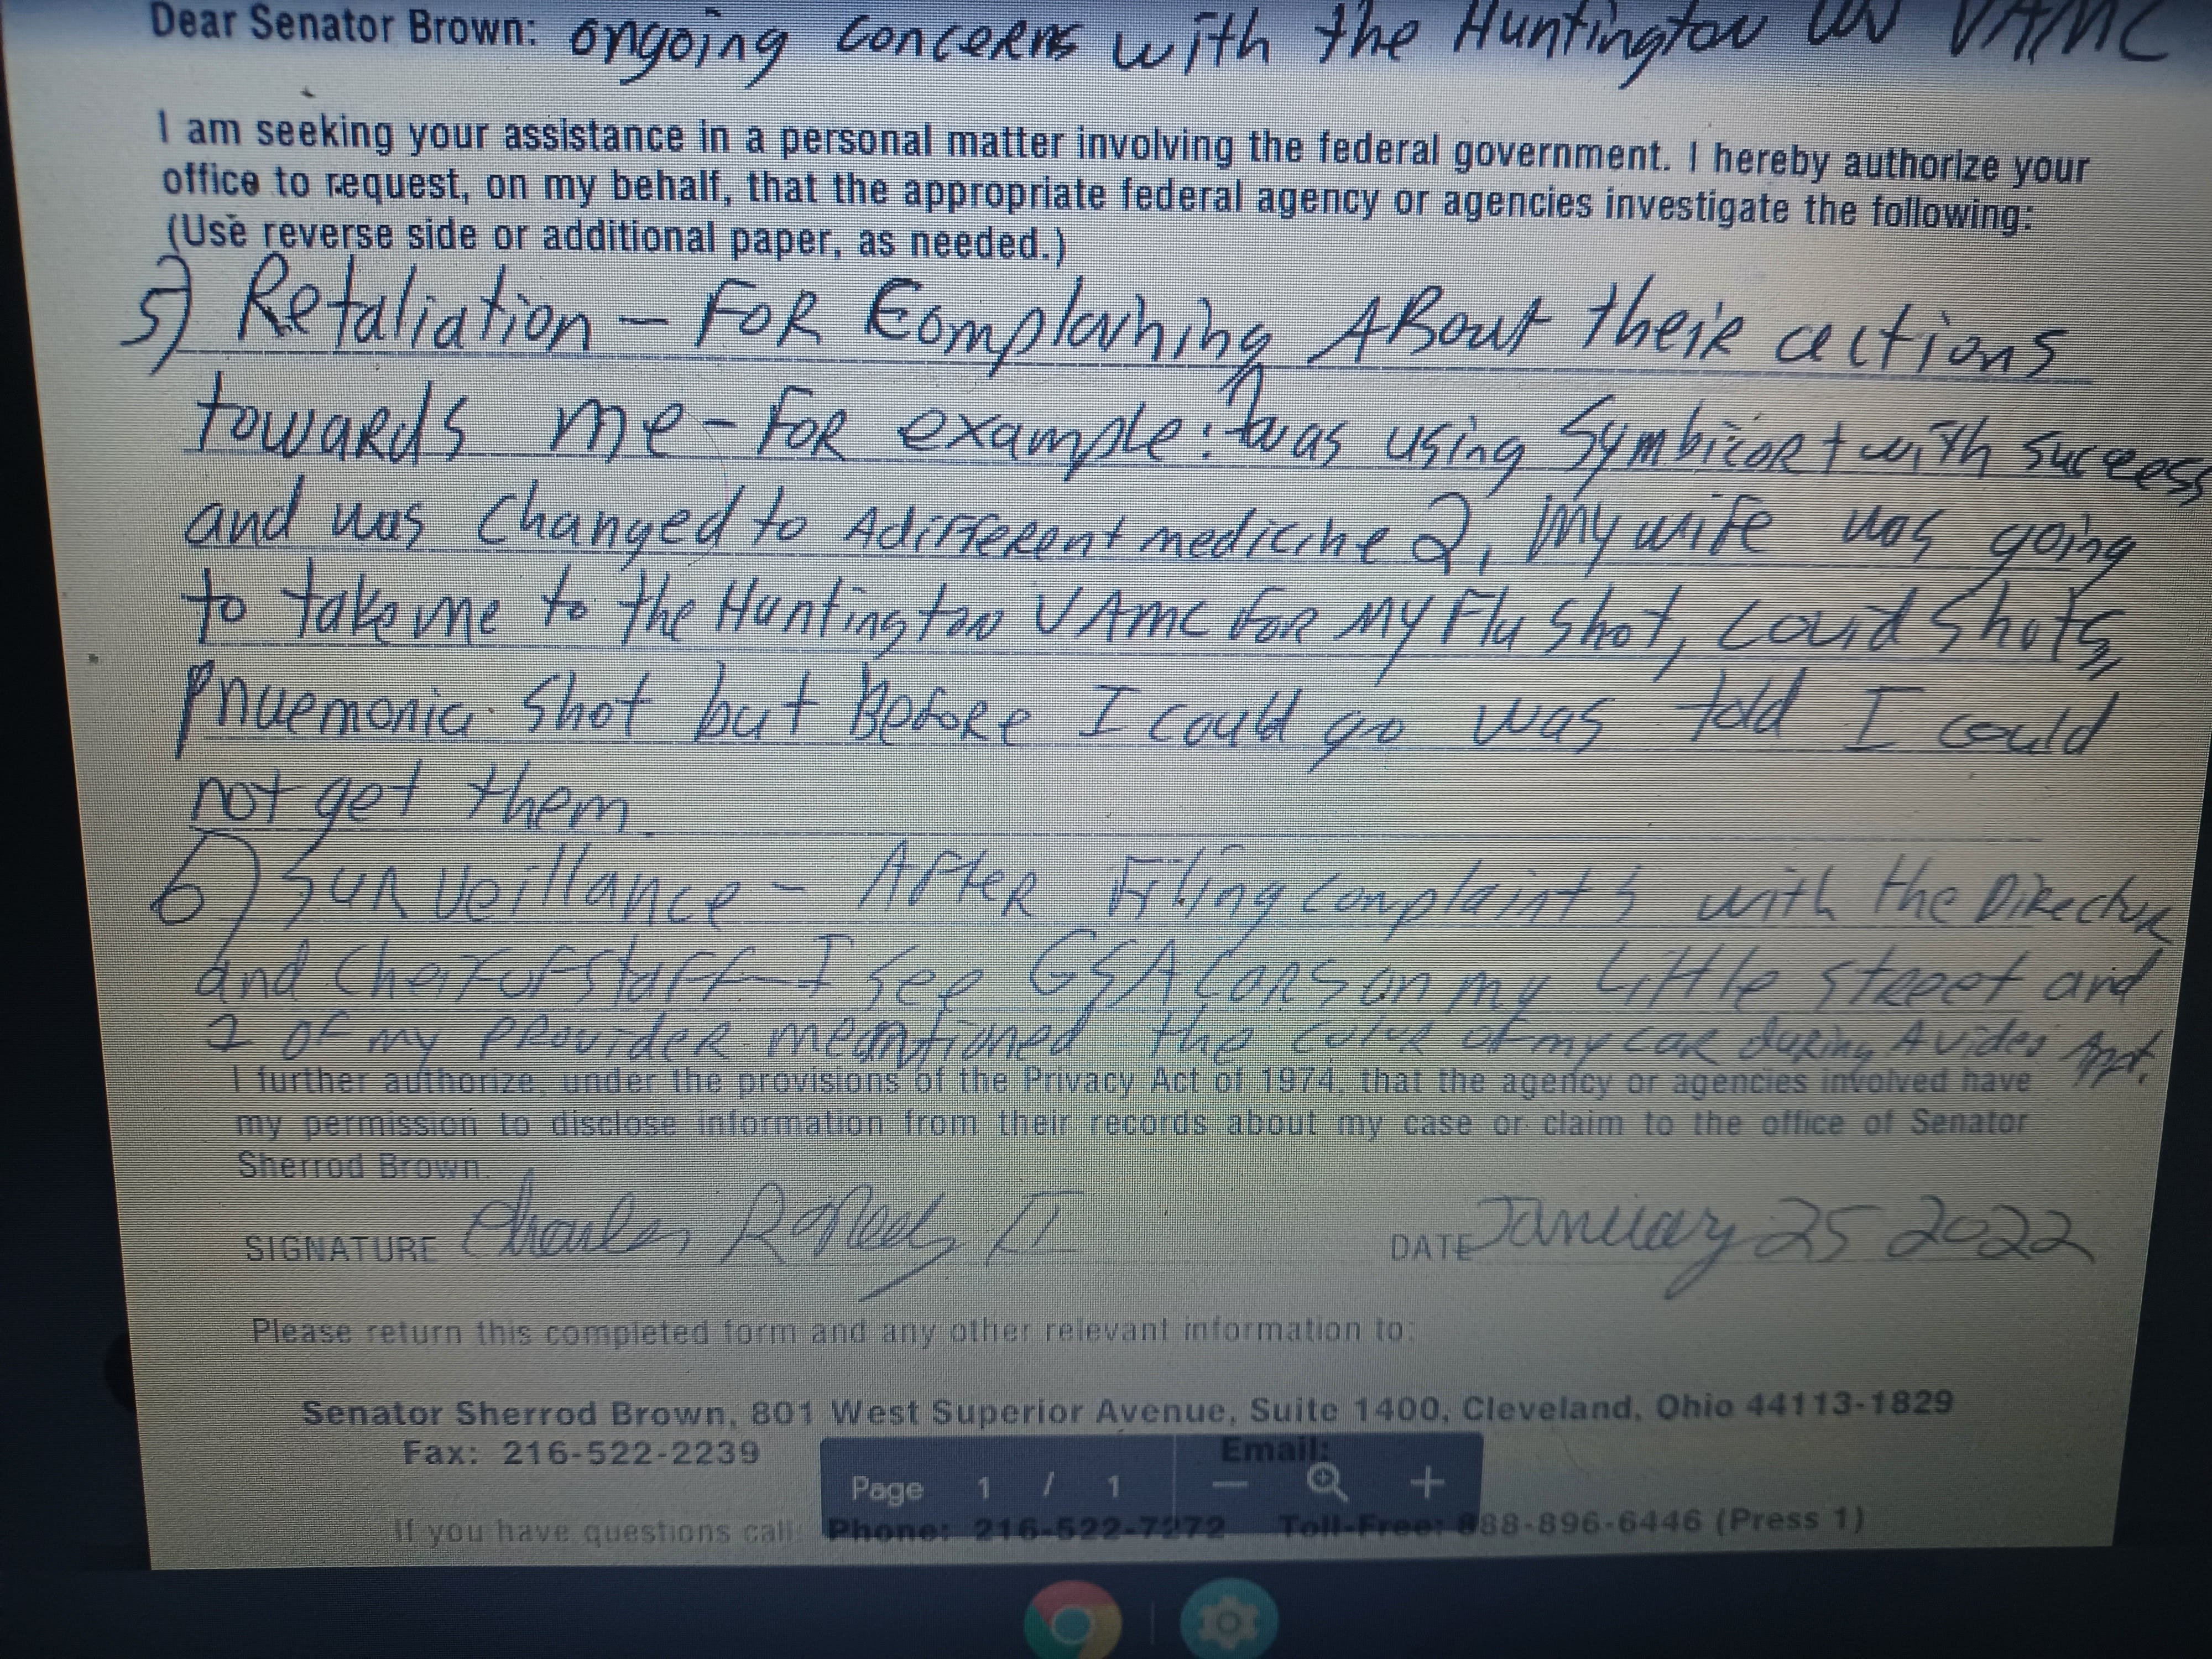 Dear Senator Brown: ongoing concerns with the Huntington WV VAMC
I am seeking your assistance in a personal matter involving the federal government. I hereby authorize your
office to request, on my behalf, that the appropriate federal agency or agencies investigate the following:
(Use reverse side or additional paper, as needed.)
5) Retaliation - FOR Complaining ABout their actions
towards me - FOR example: I was using Symbicort with success
and was changed to A different medicine 2, My wife was going
to take me to the Huntington VAMC for My Flu Shot, Covid Shots,
Pnuemonia Shot but Before I could go was told I could
not get them
6) Surveillance - AFter Filing complaints with the Director
and Cheif of Staff I see GSA Cars on my Little street and
2 of my PROvider meantioned the color of my car during A video Appt.
I further authorize, under the provisions of the Privacy Act of 1974, that the agency or agencies involved have
my permission to disclose information from their records about my case or claim to the office of Senator
Sherrod Brown.
SIGNATURE Charles R II DATE January 25 2022
Please return this completed form and any other relevant information to:
Senator Sherrod Brown, 801 West Superior Avenue, Suite 1400, Cleveland, Ohio 44113-1829
Fax: 216-522-2239 Email:
Page 1 / 1 − +
If you have questions call: Phone: 216-522-7272 Toll-Free: 888-896-6446 (Press 1)